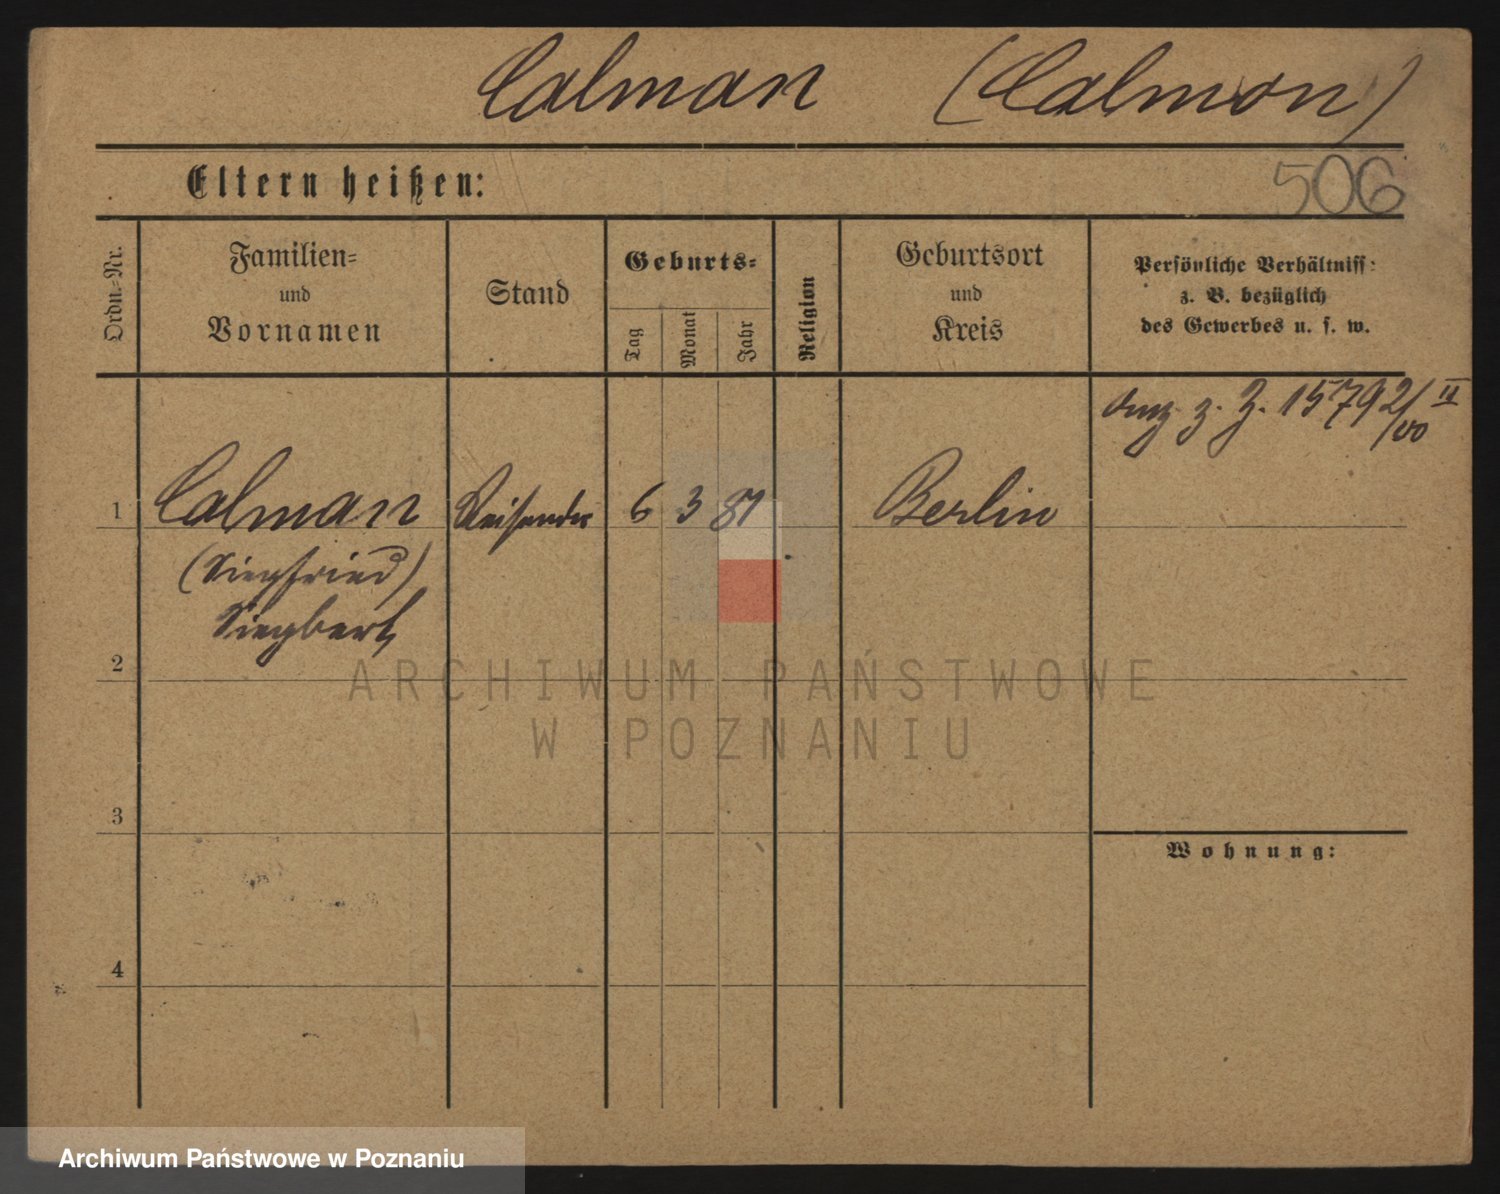 Calman (Calmon)
Eltern heißen:
506
Ordn.-Nr.
Familien-
und
Vornamen
Stand
Geburts-
Tag
Monat
Jahr
Religion
Geburtsort
und
Kreis
Persönliche Verhältniss-
z. B. bezüglich
des Gewerbes u. s. w.
z. Z. 15792/00 II
1 Calman Reisender 6 3 81 Berlin
(Siegfried)
Siegbert
2
ARCHIWUM PAŃSTWOWE
W POZNANIU
3
Wohnung:
4
Archiwum Państwowe w Poznaniu